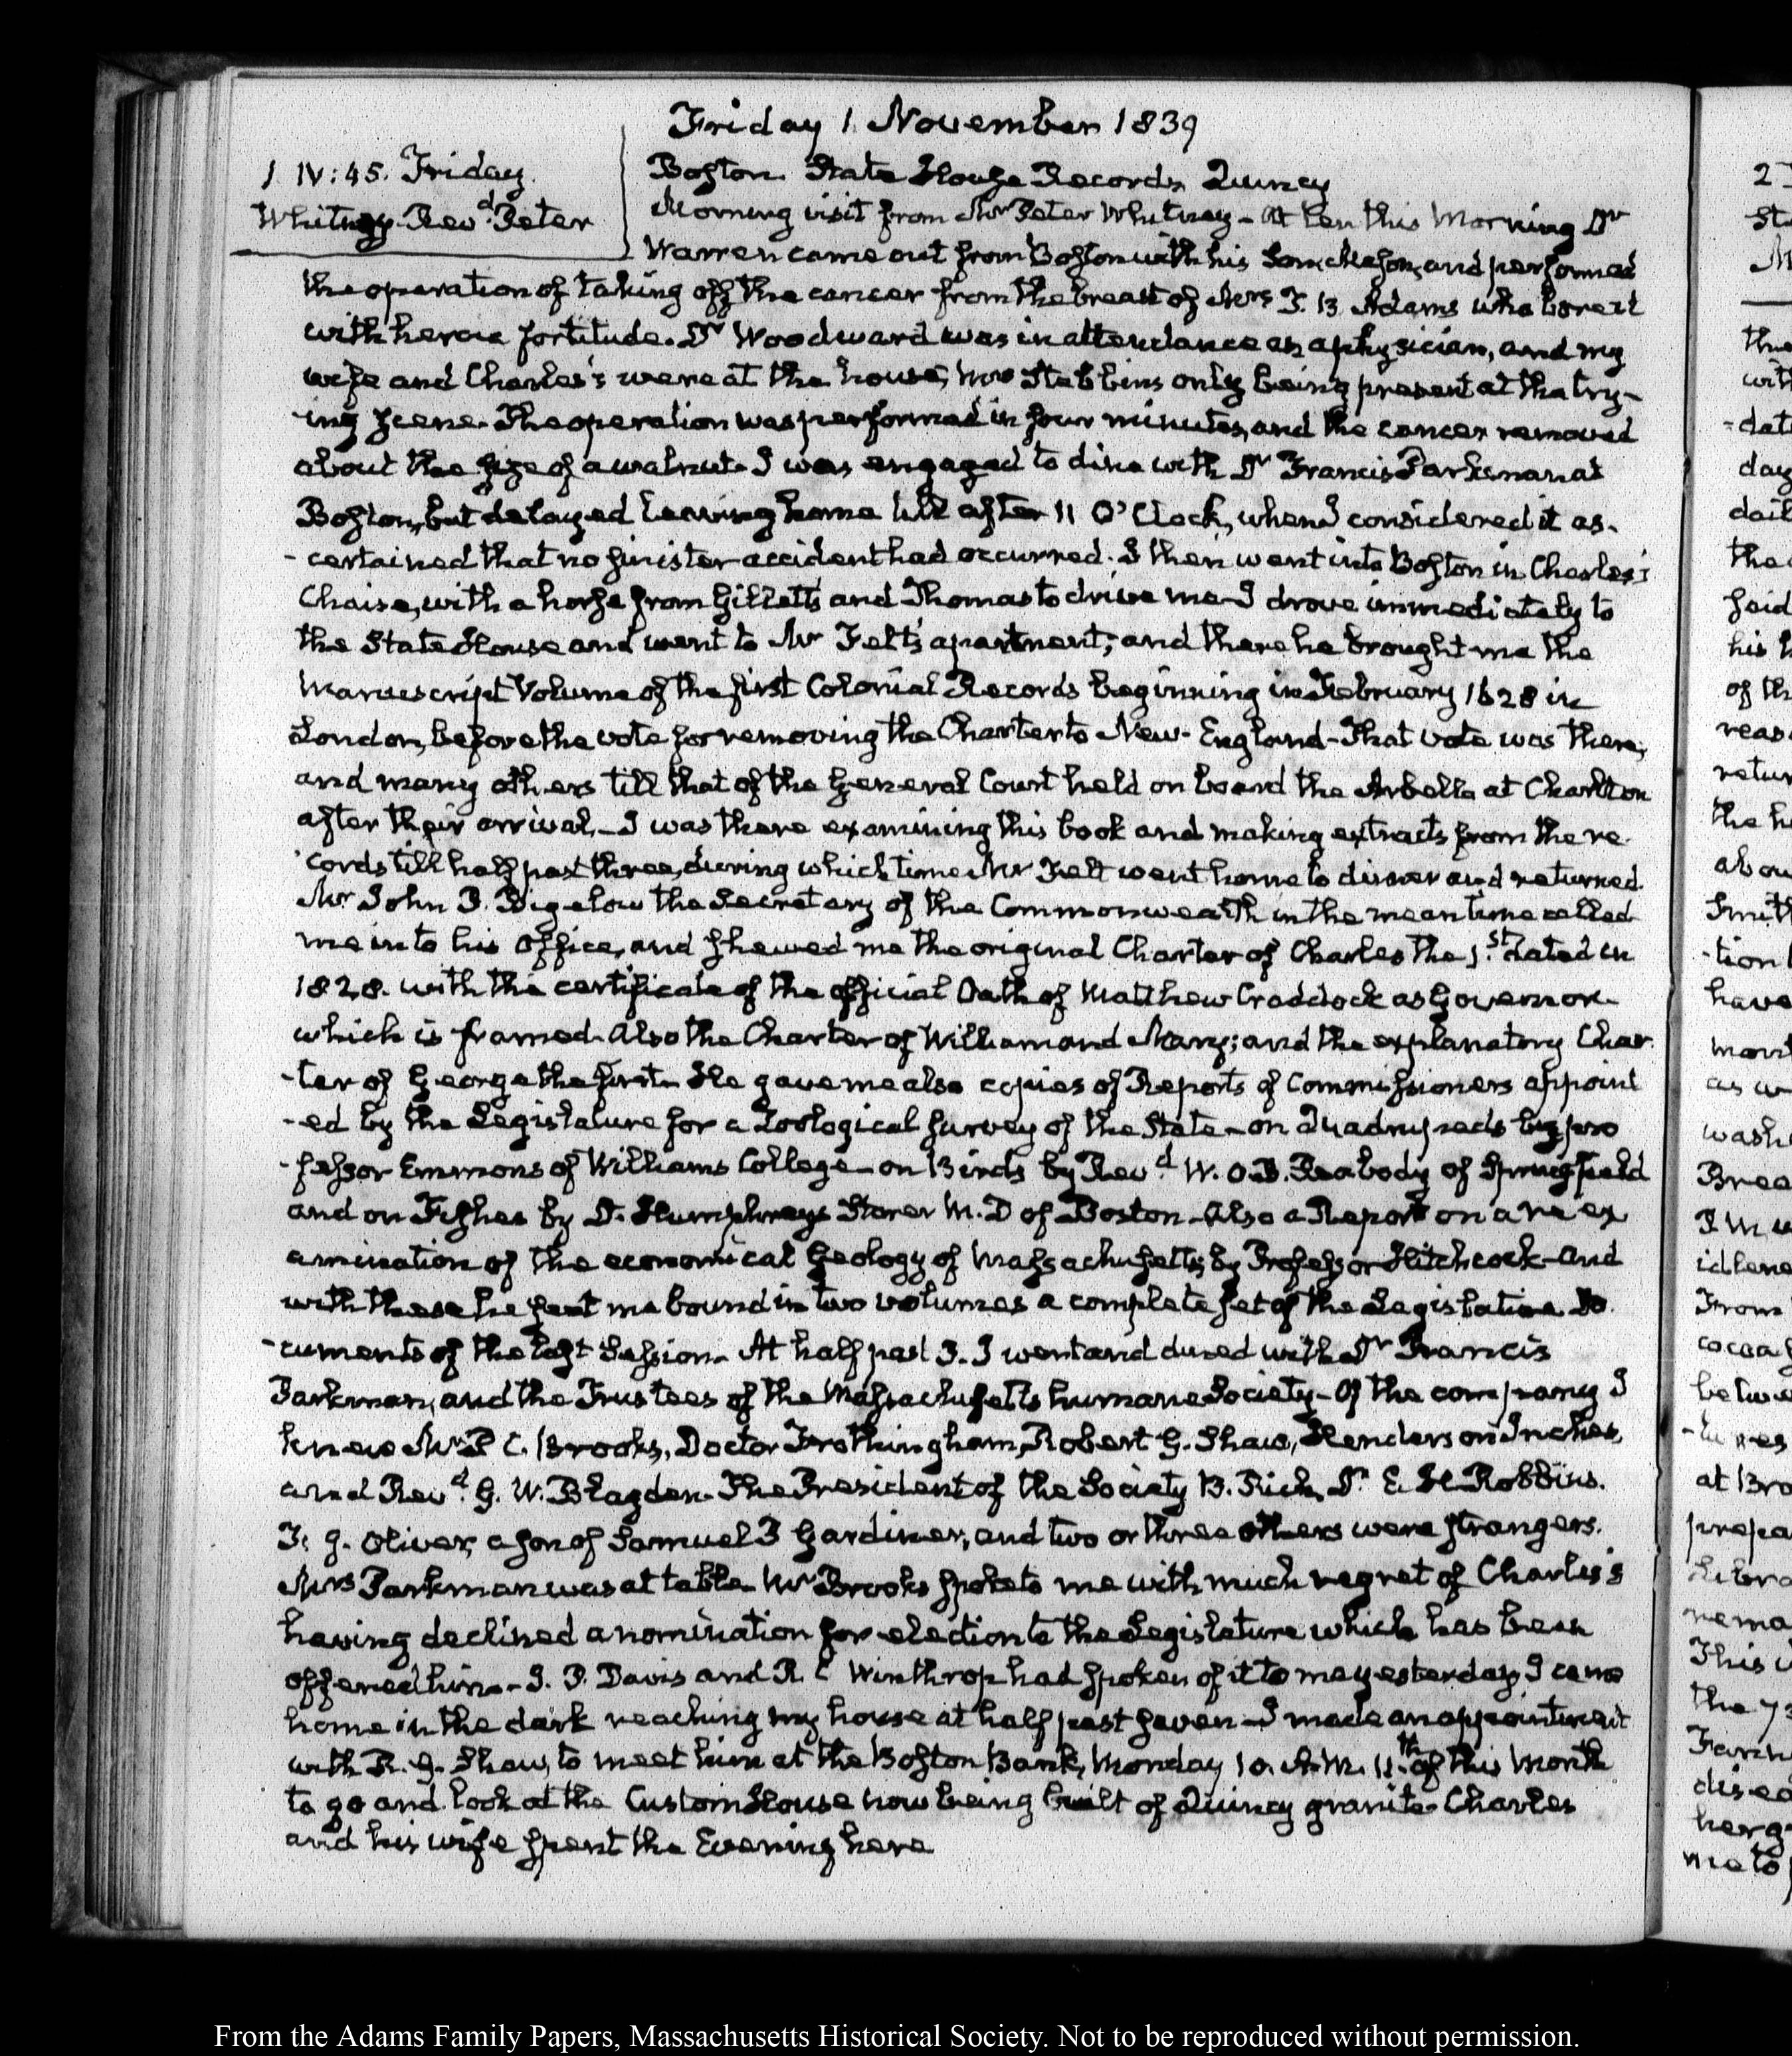 Friday 1. November 1839
1 IV:45. Friday.
Whitney Revd. Peter
Boston. State House Records, Quincy
Morning visit from Mr Peter Whitney – At ten this Morning Dr
Warren came out from Boston with his Son, Mason, and performed
the operation of taking off the cancer from the breast of Mrs T. B. Adams who bore it
with heroic fortitude. Dr Woodward was in attendance as a physician, and my
wife and Charles's were at the house, Mrs Stebbins only being present at the try-
ing scene. The operation was performed in four minutes, and the cancer removed
about the size of a walnut. I was engaged to dine with Dr Francis Parkman at
Boston, but delayed leaving home till after 11 O'Clock, when I considered it as-
-certained that no sinister accident had occurred. I then went into Boston in Charles's
Chaise, with a horse from Gilletts and Thomas to drive me – I drove immediately to
the State House and went to Mr Felt's apartment; and there he brought me the
Manuscript Volume of the first Colonial Records beginning in February 1628 in
London, before the vote for removing the Charter to New-England – That vote was there,
and many others till that of the General Court held on board the Arbella at Charlton
after their arrival. – I was there examining this book and making extracts from the re
-cords till half past three, during which time Mr Felt went home to dinner and returned.
Mr John P. Bigelow the Secretary of the Commonwealth in the mean time called
me into his Office, and shewed me the original Charter of Charles the 1.st dated in
1828. with the certificate of the official Oath of Matthew Craddock as Governor
which is framed. Also the Charter of William and Mary; and the explanatory Char
-ter of George the first. He gave me also copies of Reports of Commissioners appoint
-ed by the Legislature for a Zoological survey of the State – on Quadrupeds by Pro
-fessor Emmons of Williams College – on Birds by Revd W. O. B. Peabody of Springfield
and on Fishes by D. Humphreys Storer M. D of Boston. Also a Report on a re ex
amination of the economical Geology of Massachusetts by Professor Hitchcock – and
with these he sent me bound in two volumes a complete set of the Legislative Do
-cuments of the last Session. At half past 3. I went and dined with Dr Francis
Parkman, and the Trustees of the Massachusetts humane Society – Of the company I
knew Mr P. C. Brooks, Doctor Frothingham, Robert G. Shaw, Henderson Inches,
and Revd. G. W. Blagden. The President of the Society B. Rich, Dr. E. H. Robbins.
F. J. Oliver, a son of Samuel P Gardiner, and two or three others were strangers.
Mrs Parkman was at table. Mr Brooks spoke to me with much regret of Charles's
having declined a nomination for election to the Legislature which has been
offered him. – I. P. Davis and R. C Winthrop had spoken of it to me yesterday. I came
home in the dark reaching my house at half past seven – I made an appointment
with R. G. Shaw, to meet him at the Boston Bank, Monday 10. A.M. 11.th of this Month
to go and look at the Custom House now being built of Quincy granite. Charles
and his wife spent the Evening here
From the Adams Family Papers, Massachusetts Historical Society. Not to be reproduced without permission.